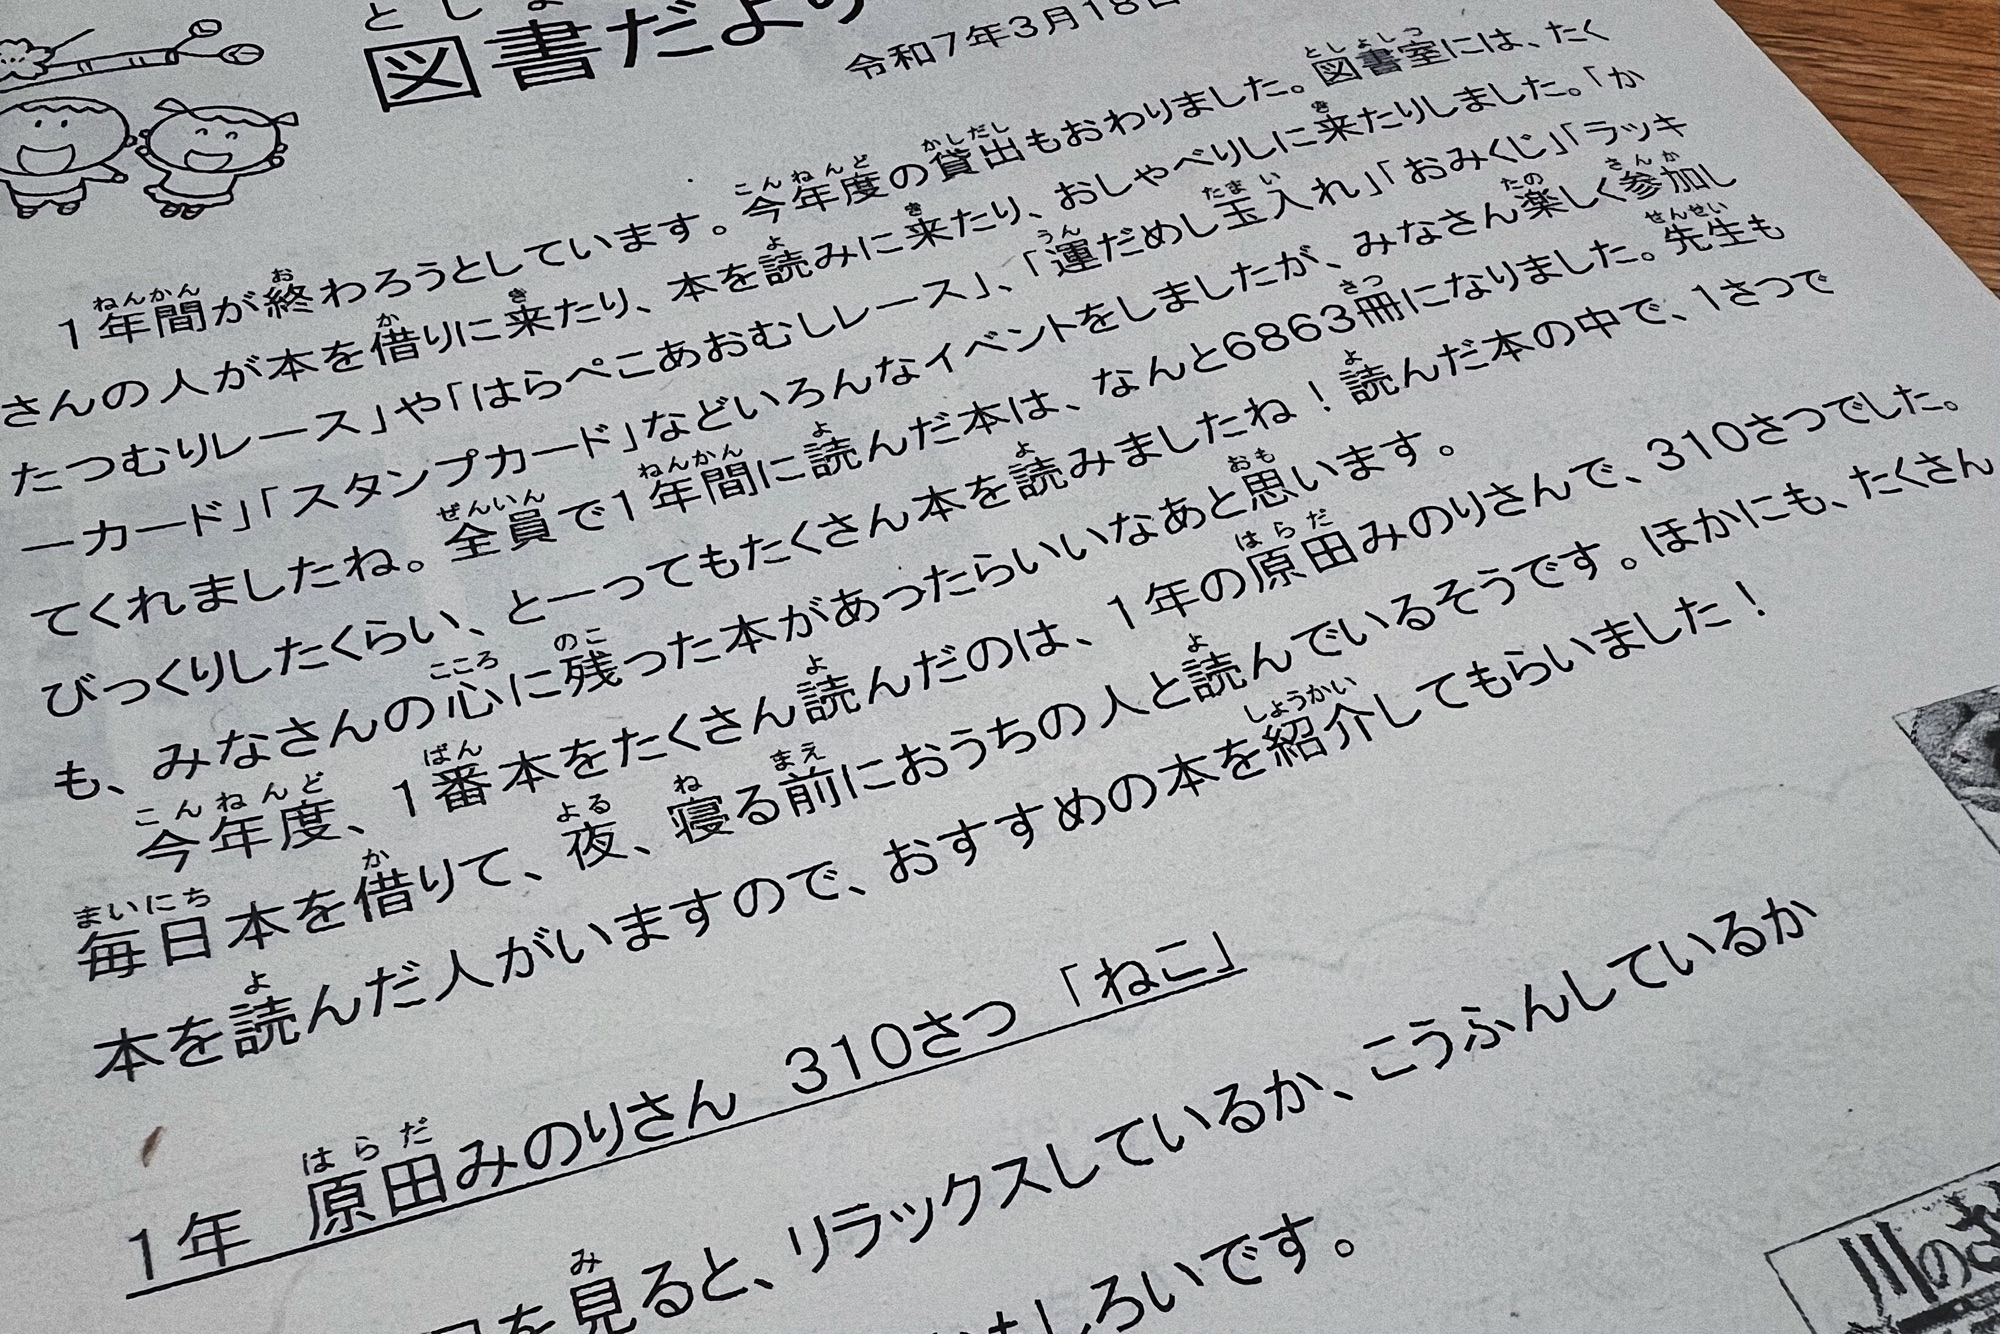 図書だより
令和7年3月18日
1年間が終わろうとしています。今年度の貸出もおわりました。図書室には、たく
さんの人が本を借りに来たり、本を読みに来たり、おしゃべりしに来たりしました。「か
たつむりレース」や「はらぺこあおむしレース」、「運だめし玉入れ」「おみくじ」「ラッキ
ーカード」「スタンプカード」などいろんなイベントをしましたが、みなさん楽しく参加し
てくれましたね。全員で1年間に読んだ本は、なんと6863冊になりました。先生も
びっくりしたくらい、とーってもたくさん本を読みましたね！読んだ本の中で、1さつで
も、みなさんの心に残った本があったらいいなあと思います。
今年度、1番本をたくさん読んだのは、1年の原田みのりさんで、310さつでした。
毎日本を借りて、夜、寝る前におうちの人と読んでいるそうです。ほかにも、たくさん
本を読んだ人がいますので、おすすめの本を紹介してもらいました！
1年 原田みのりさん 310さつ 「ねこ」
を見ると、リラックスしているか、こうふんしているか
しろいです。
川のさ